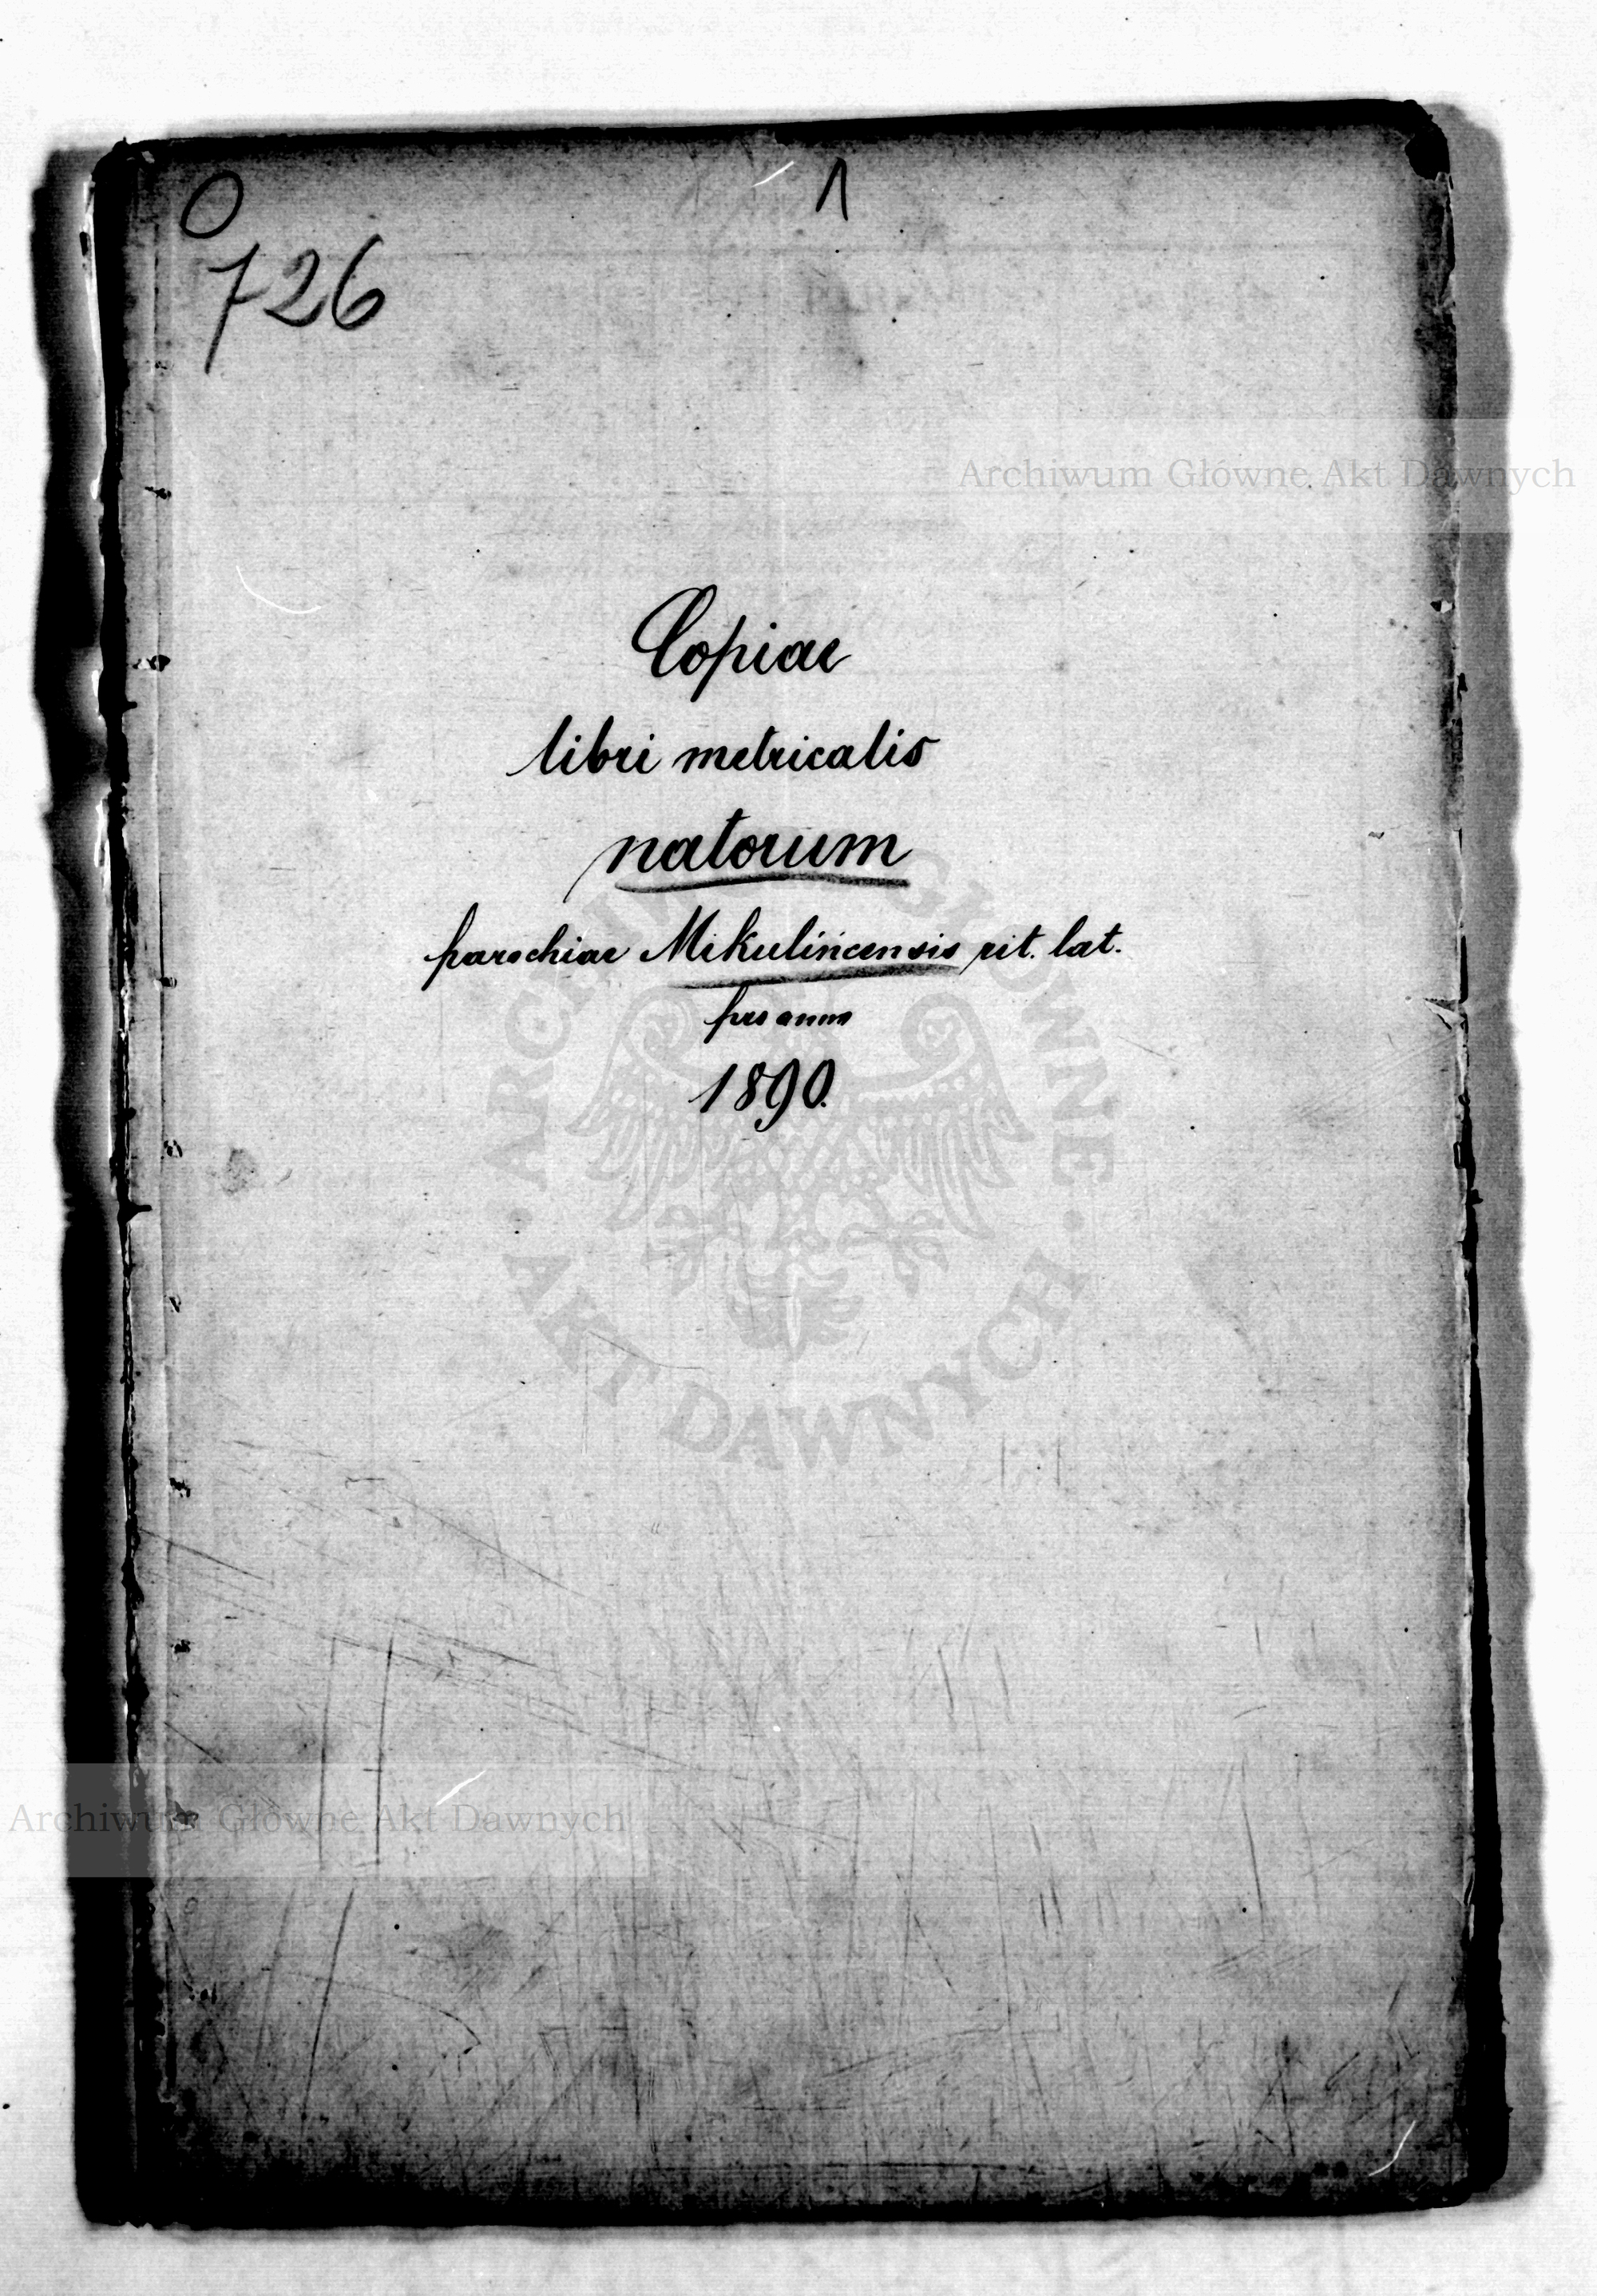 0
1
726
Archiwum Główne Akt Dawnych
Copiae
libri metricalis
natorum
parochiae Mikulińcensis rit. lat.
pro anno
1890.
ARCHIWUM GŁÓWNE · AKT DAWNYCH ·
Archiwum Główne Akt Dawnych